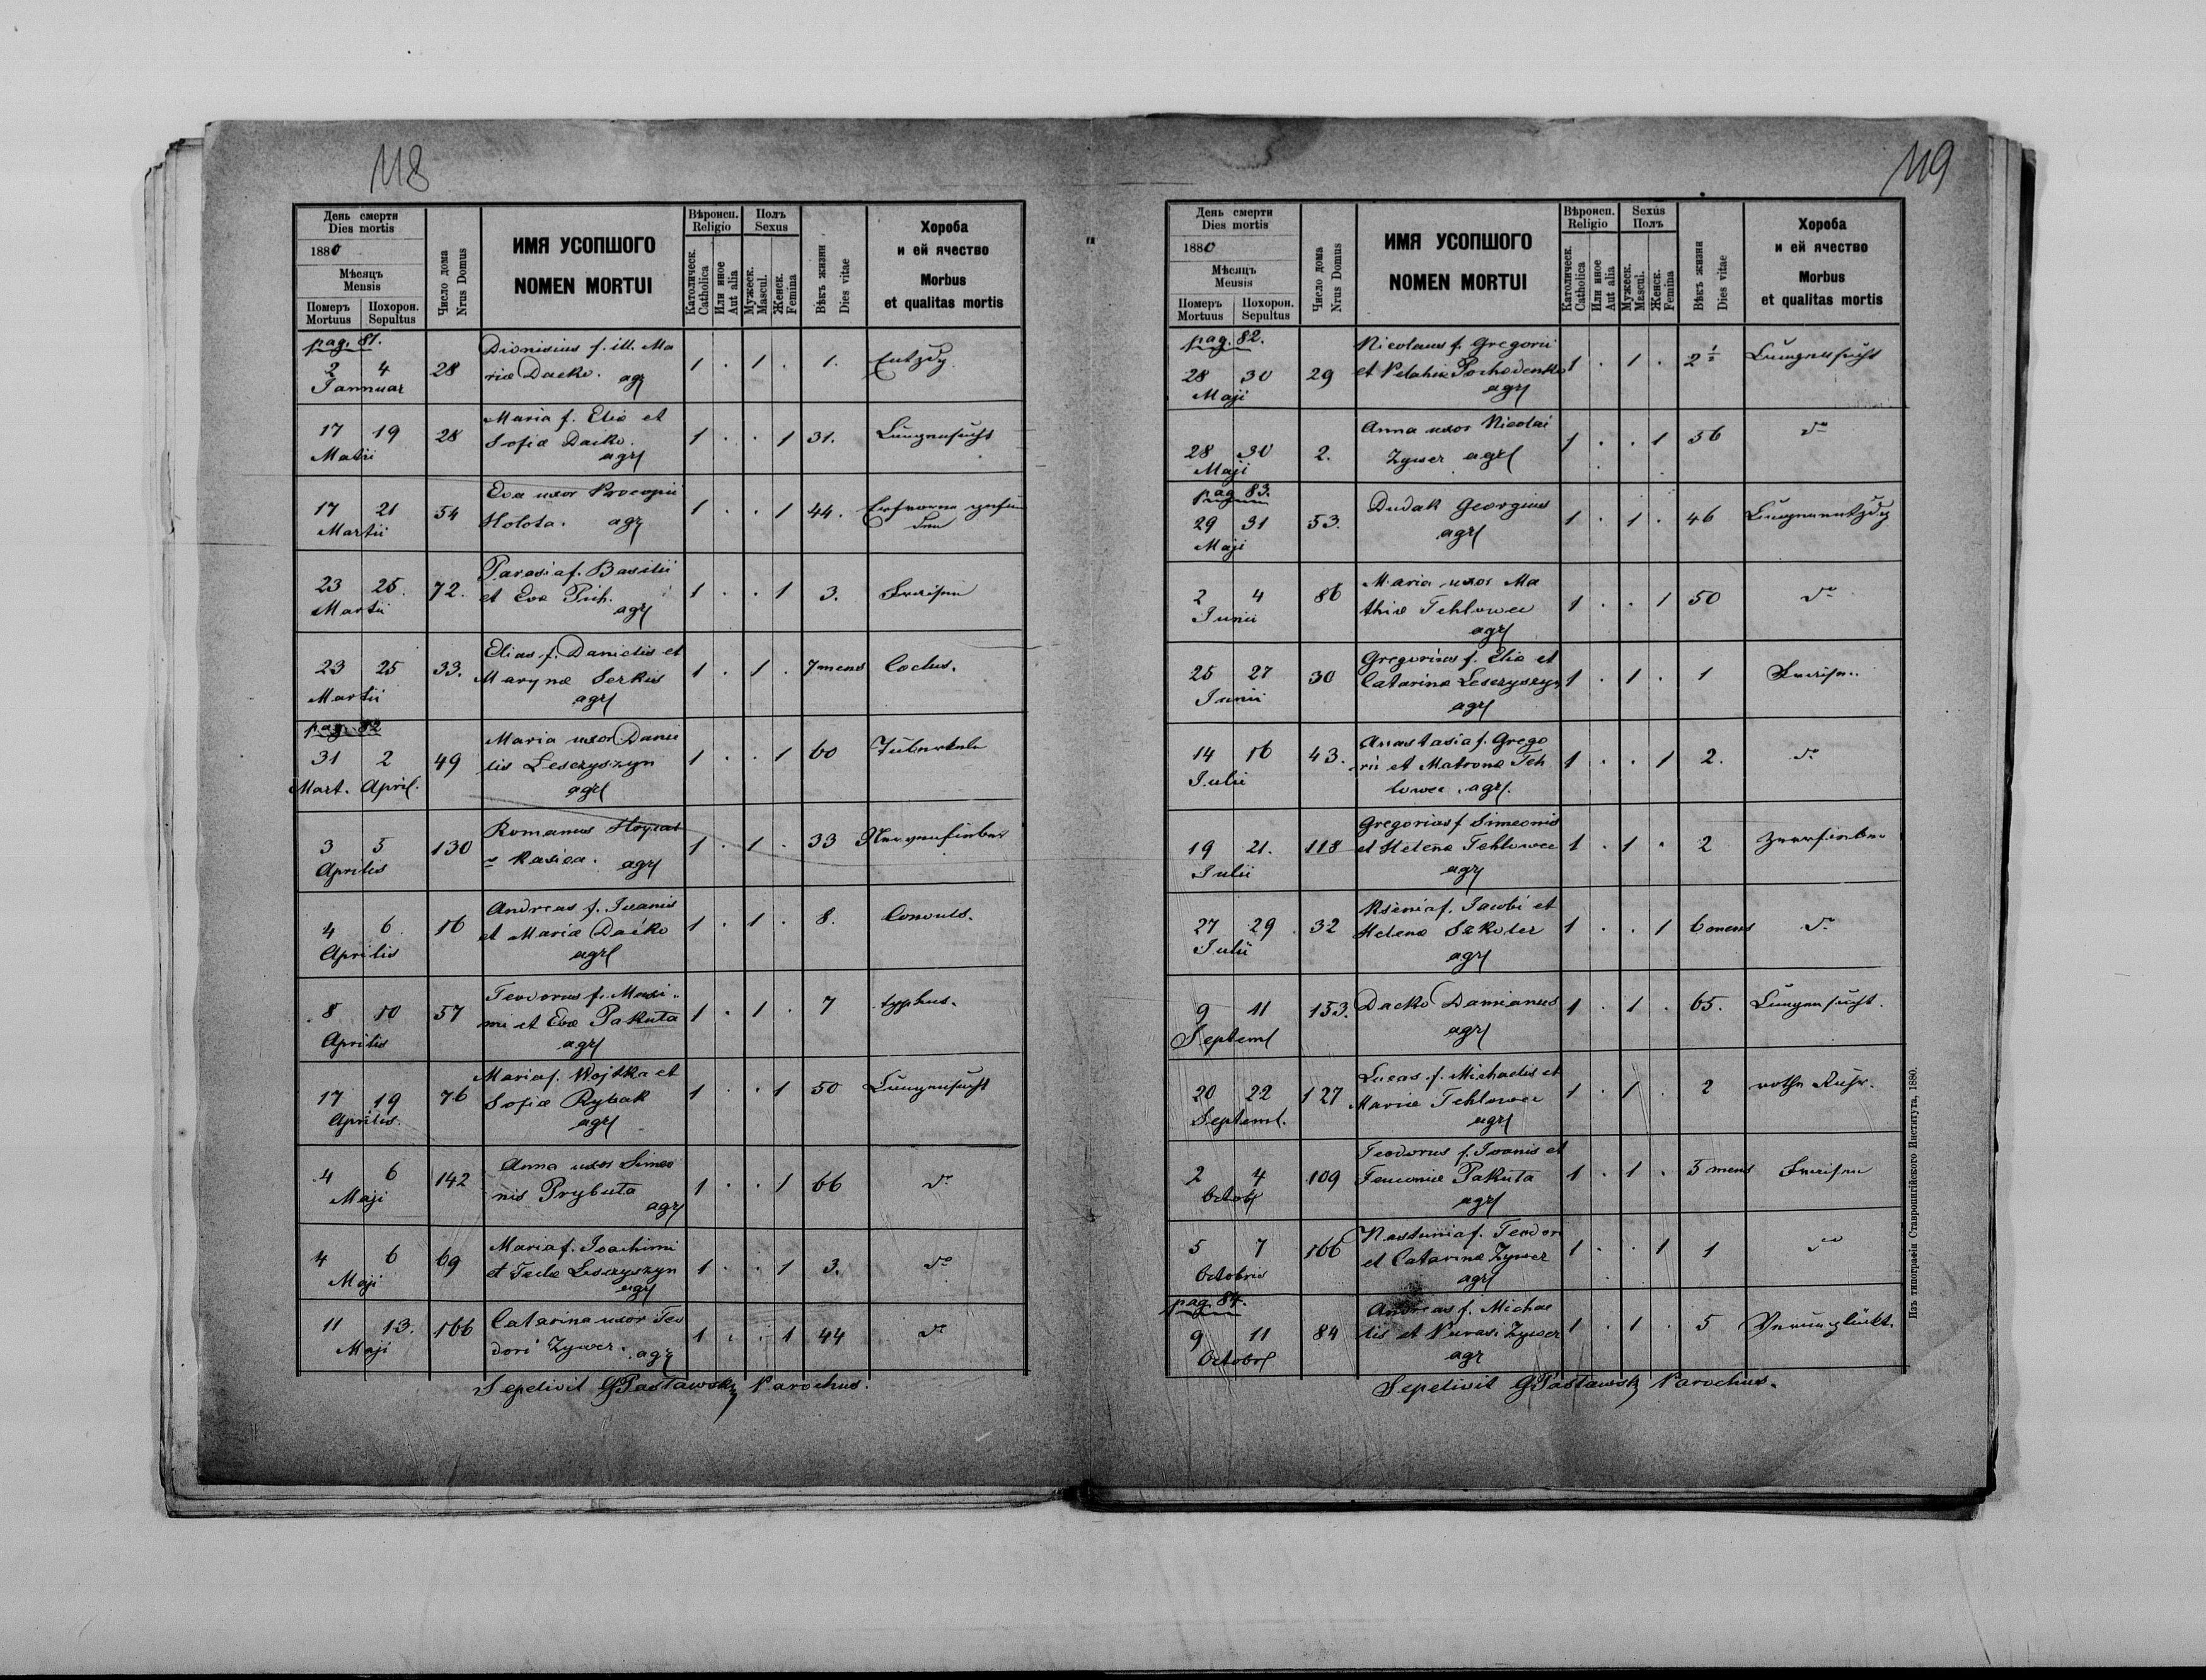 118
День смерти
Dies mortis
1880
Мѣсяцъ
Mensis
Померъ Похорон.
Mortuus Sepultus
Число дома
Nrus Domus
ИМЯ УСОПШОГО
NOMEN MORTUI
Вѣроисп.
Religio
Католическ.
Catholica
Или иное
Aut alia
Полъ
Sexus
Мужеск.
Mascul.
Женск.
Femina
Вѣкъ жизни
Dies vitae
Хороба
и ей ячество
Morbus
et qualitas mortis
pag. 81.
Dionisius f. ill. Ma
2 4 28 riæ Dacko. agr 1 . 1 . 1.
Jannuar
Maria f. Eliæ et
17 19 28 Sofiæ Dacko. 1 . . 1 31. Lungensucht
agr
Eva uxor Procopii
17 21 54 Holota. agr 1 . . 1 44.
Martii
Parasia f. Basilii
23 25. 72. et Evæ Pich. 1 . . 1 3. Fraisen
Martii agr
Elias f. Danielis et
23 25 33. Marynæ Serkis 1 . 1 . 7 mens Coclus.
Martii agr
pag. 82
Maria uxor Danie
31 2 49 lis Leszyszyn 1 . . 1 60 Tuberkuln
Mart. April. agr
Romanus
3 5 130 agr 1 . 1 . 33 Nervenfieber
Aprilis
Andreas f. Ivanis
4 6. 16 et Mariæ Dacko 1 . 1 . 8. Convuls.
Aprilis agr
Teodorus f. Maxi-
8 10 57 mi et Evæ Pakuta 1 . 1 . 7 typhus.
Aprilis agr
Maria f. Wojtka et
17 19 76 Sofiæ Rybak 1 . . 1 50 Lungensucht
Aprilis. agr
Anna uxor Simeo
4 6 142 nis Prybuta 1 . . 1 66 do
Maji agr
Maria f. Joachimi
4 6 69 et Teclæ Leszyszyn 1 . . 1 3. do
Maji agr
Catarina uxor Teo
11 13. 166 dori Zywer. agr 1 . . 1 44 do
Maji
Sepelivit GPasławsky Parochus.
119
День смерти
Dies mortis
1880
Мѣсяцъ
Mensis
Померъ Похорон.
Mortuus Sepultus
Число дома
Nrus Domus
ИМЯ УСОПШОГО
NOMEN MORTUI
Вѣроисп.
Religio
Католическ.
Catholica
Или иное
Aut alia
Sexus
Полъ
Мужеск.
Mascul.
Женск.
Femina
Вѣкъ жизни
Dies vitae
Хороба
и ей ячество
Morbus
et qualitas mortis
pag. 82.
Nicolaus f. Gregorii
28 30 29 et Pelahiæ Pochodenko 1 . 1 . 2 1/2 Lungensucht
Maji agr
Anna uxor Nicolai
28 30 2. Zywer agr 1 . . 1 56 do
Maji
pag 83.
Dudak Georgius
29 31 53. agr 1 . 1 . 46 Lungenentzdg
Maji
Maria uxor Ma
2 4 86 thiæ Tchlowec 1 . . 1 50 do
Junii agr
Gregorius f. Eliæ et
25 27 30 Catarinæ Leszyszyn 1 . 1 . 1 Fraisen
Junii agr
Anastasia f. Grego
14 16 43. rii et Matronæ Tch 1 . . 1 2. do
Julii lowec. agr.
Gregorius f Simeonis
19 21. 118 et Helenæ Tchlowec 1 . 1 . 2
Julii agr
Kseniia f. Jacobi et
27 29 32 Helenæ 1 . . 1 6 mens do
Julii agr
9 11 153. Dacko Damianus 1 . 1 . 65. Lungensucht.
Septem agr
Lucas f. Michaelis et
20 22 127 Mariæ Tchlowec 1 . 1 . 2 rothe Ruhr.
Septem. agr
Teodorus f. Ivanis et
2 4 109 Pakuta 1 . 1 . 5 mens Fraisen
Octob agr
Nastunia f. Teodori
5 7 166 et Catarinæ Zywer 1 . . 1 1 do
Octobris agr
pag. 84.
Andreas f. Michae
9 11 84 lis et Parasi Zywer 1 . 1 . 5 Verunglückt.
Octobr agr
Sepelivit GPasławsky Parochus.
Изъ типографіи Ставропигійского Института, 1880.